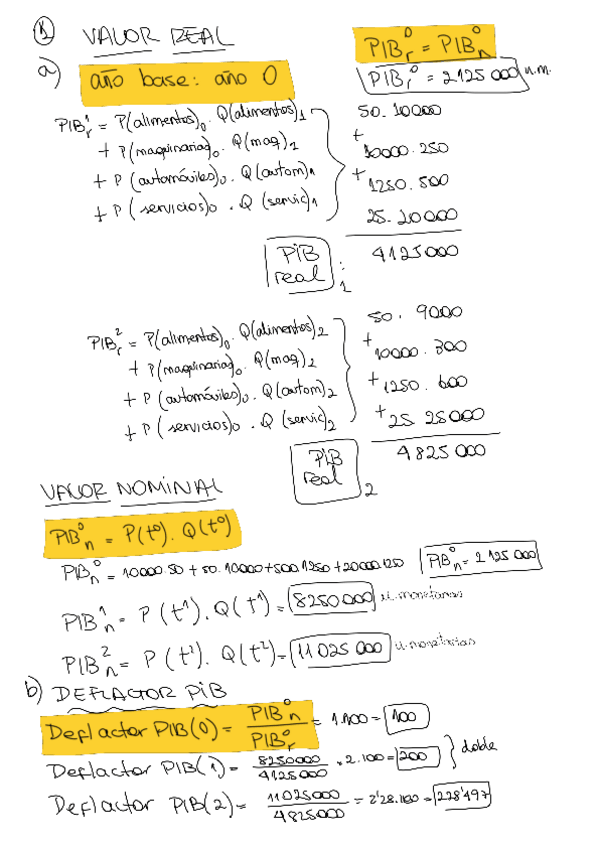 ① VALOR REAL
PIB⁰r = PIB⁰n
a) año base: año 0
PIBr⁰ = 2125 000 u.m.
PIBr¹ = P(alimentos)₀ . Q(alimentos)₁
+ P(maquinarias)₀ . Q(maq)₁
+ P(automóviles)₀ . Q(autom)₁
+ P(servicios)₀ . Q(servic)₁
50. 10000
+
10000. 250
+
1250. 500
25. 20000
PIB real : 1
4125000
PIBr² = P(alimentos)₀ . Q(alimentos)₂
+ P(maquinarias)₀ . Q(maq)₂
+ P(automóviles)₀ . Q(autom)₂
+ P(servicios)₀ . Q(servic)₂
50. 9000
+
10000. 300
+ 1250. 600
+ 25 25000
PIB real 2
4825000
VALOR NOMINAL
PIB⁰n = P(t⁰). Q(t⁰)
PIBn⁰ = 10000.50 + 50.10000+500.1250+20000.
PIBn⁰ = 2125 000
PIBn¹ = P(t¹). Q(t¹) = 8250000 u.monetarias
PIBn² = P(t²). Q(t²) = 11025 000 u.monetarias
b) DEFLACTOR PIB
Deflactor PIB(0) = PIB⁰n / PIB⁰r = 1.100 = 100
Deflactor PIB(1) = 8250000 / 4125000 = 2.100 = 200 } doble
Deflactor PIB(2) = 11025000 / 4825000 = 2'28.100 = 228'497